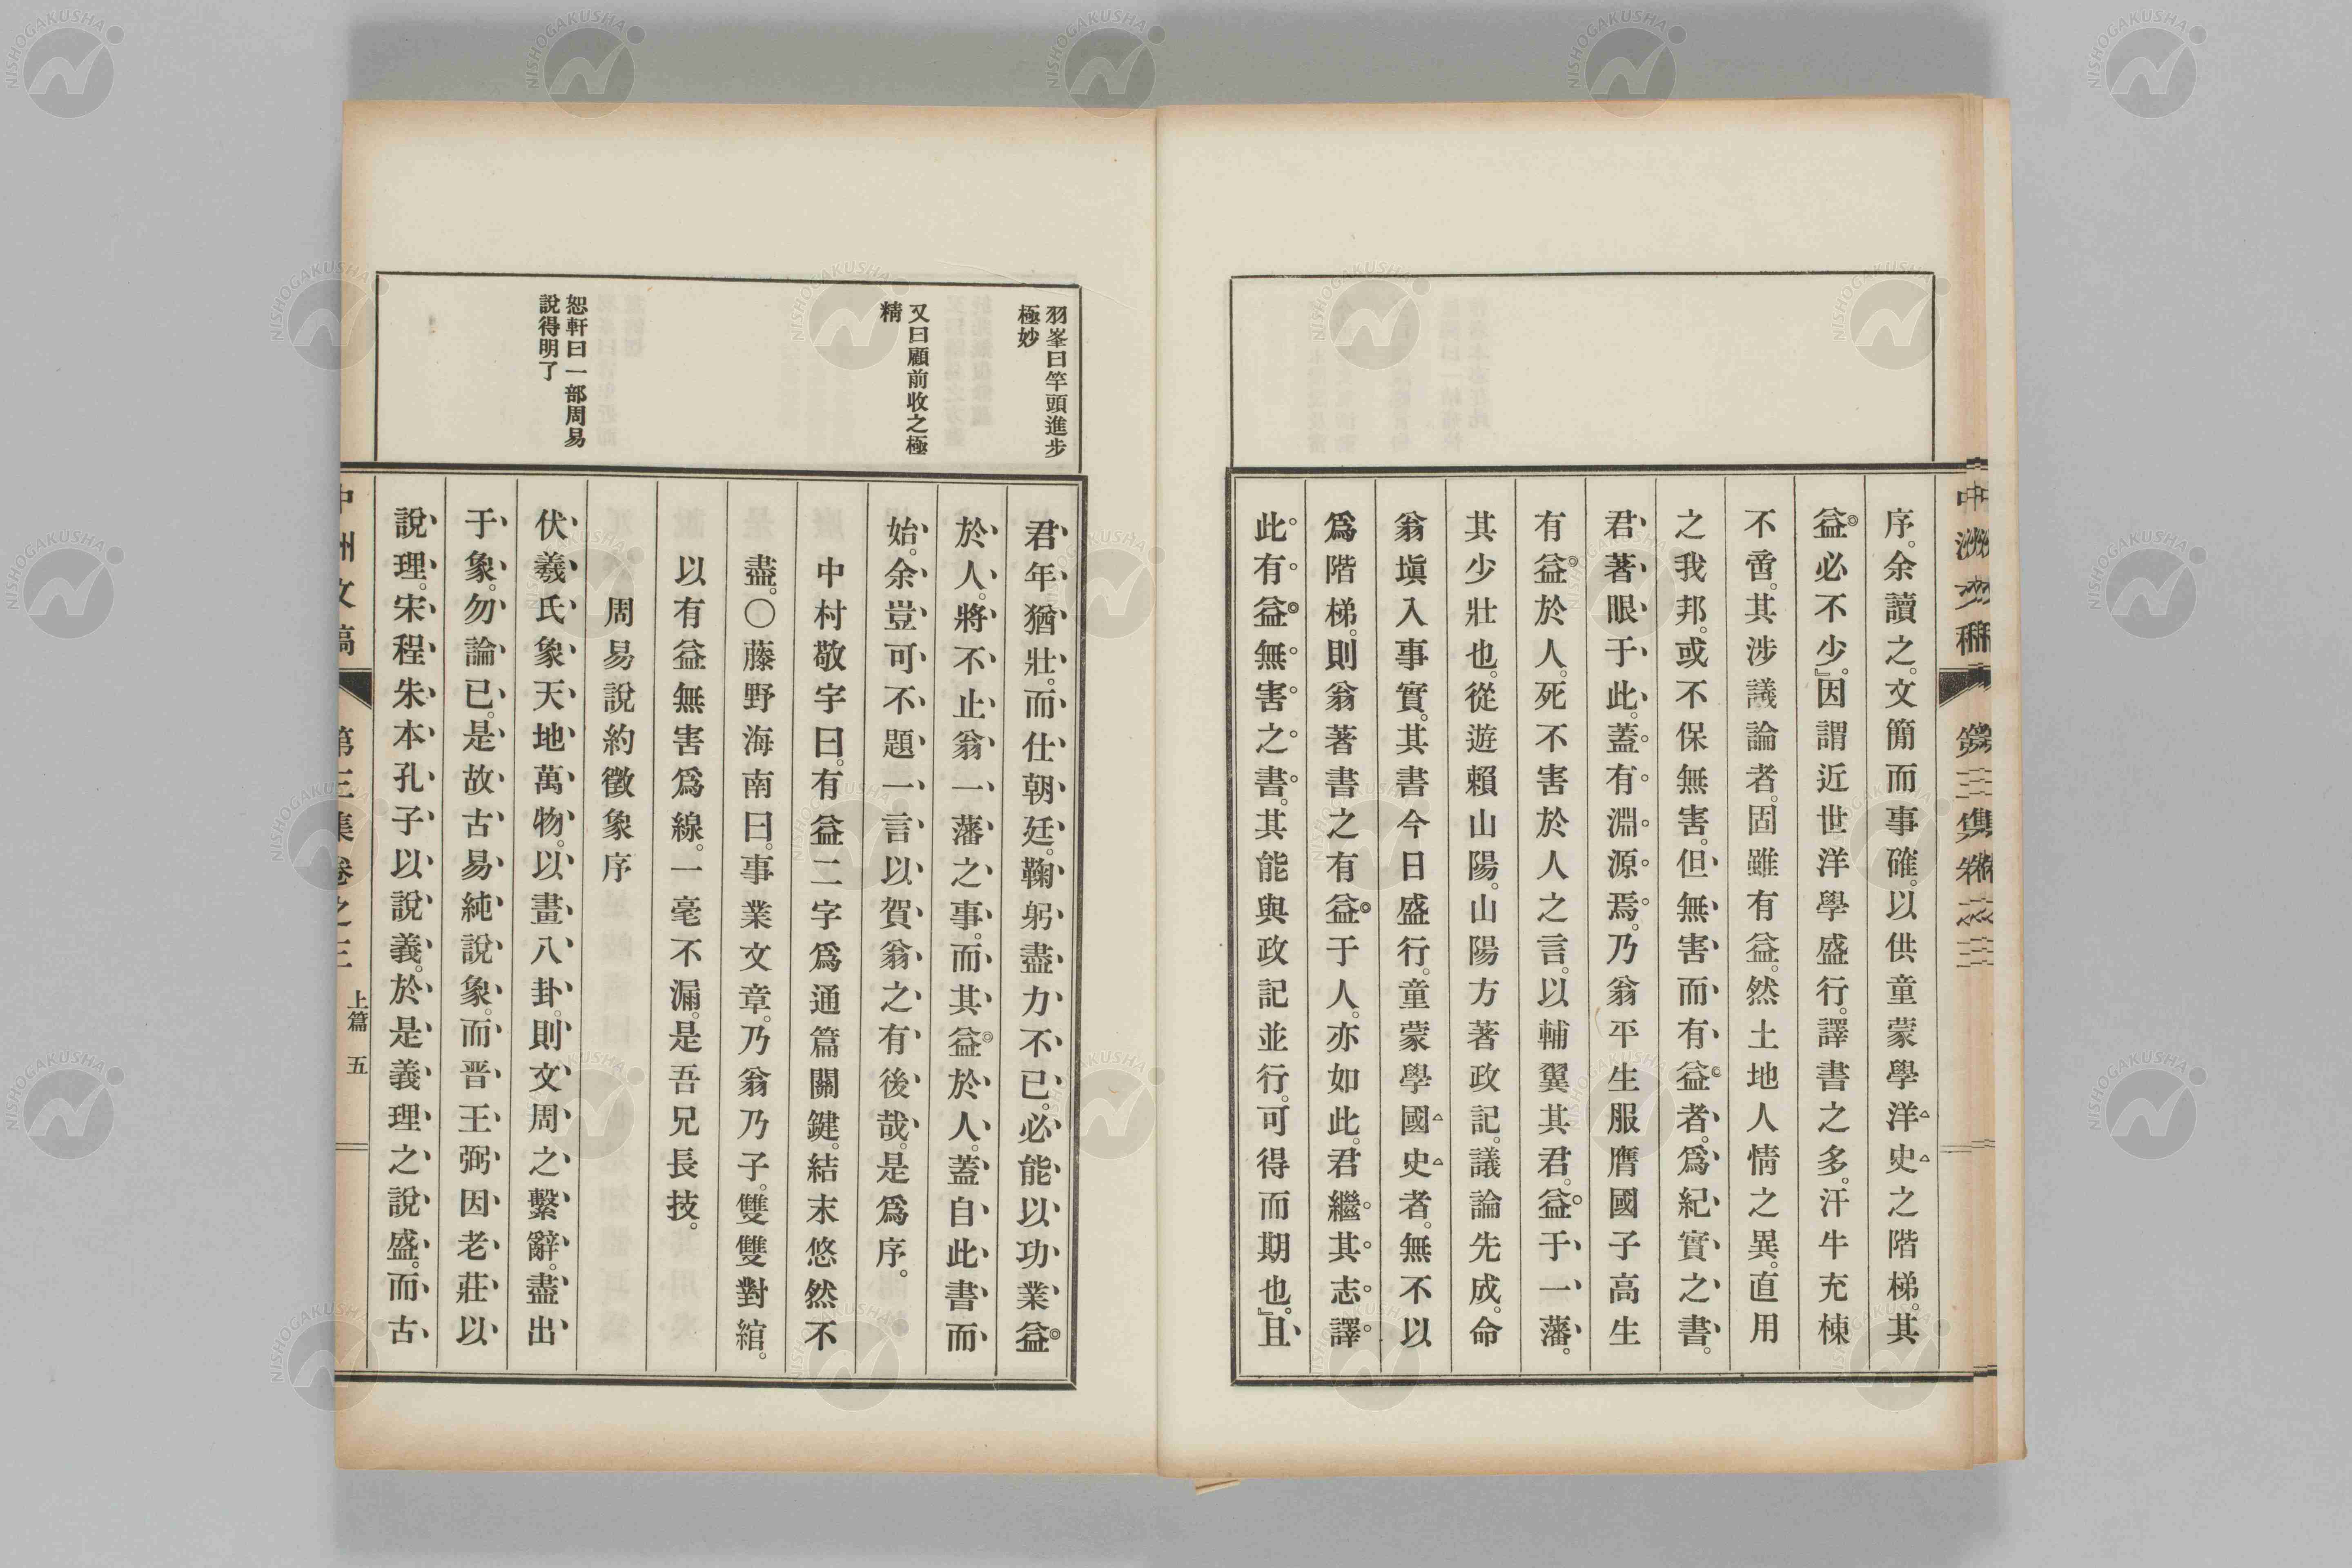 序。余讀之。文簡而事確。以供童蒙學洋史之階梯。其
益必不少。』因謂近世洋學盛行。譯書之多。汗牛充棟
不啻。其涉議論者。固雖有益。然土地人情之異。直用
之我邦。或不保無害。但無害而有益者。爲紀實之書。
君著眼于此。蓋有淵源焉。乃翁平生服膺國子高生
有益於人。死不害於人之言。以輔翼其君。益于一藩。
其少壯也。從遊賴山陽。山陽方著政記。議論先成。命
翁塡入事實。其書今日盛行。童蒙學國史者。無不以
爲階梯。則翁著書之有益于人。亦如此。君繼其志。譯
此有益無害之書。其能與政記並行。可得而期也。』且
羽峯曰竿頭進步
極妙
又曰顧前收之極
精
恕軒曰一部周易
說得明了
君年猶壯。而仕朝廷。鞠躬盡力不已。必能以功業益
於人。將不止翁一藩之事。而其益於人。蓋自此書而
始。余豈可不題一言以賀翁之有後哉。是爲序。
中村敬宇曰。有益二字爲通篇關鍵。結末悠然不
盡。〇藤野海南曰。事業文章。乃翁乃子。雙雙對綰。
以有益無害爲線。一毫不漏。是吾兄長技。
周易說約徵象序
伏羲氏象天地萬物。以畫八卦。則文周之繫辭。盡出
于象。勿論已。是故古易純說象。而晋王弼因老莊以
說理。宋程朱本孔子以說義。於是義理之說盛。而古
中洲文稿
第三集卷之三
上篇
五